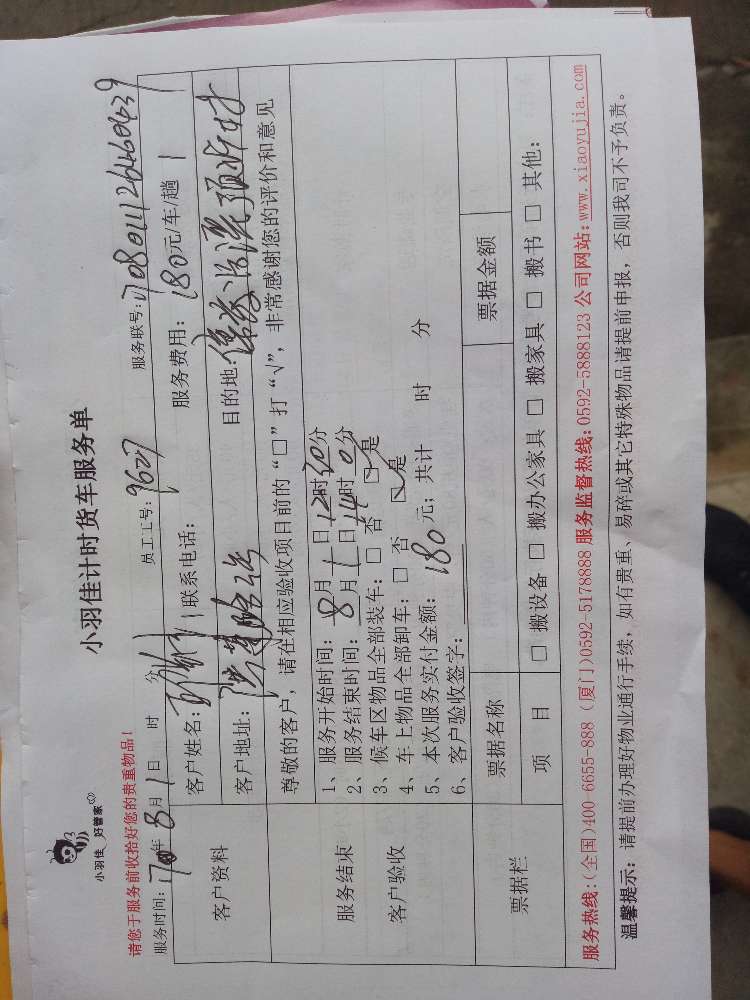 小羽佳 好管家
小羽佳计时货车服务单
请您于服务前收拾好您的贵重物品！
服务时间: 年 8月1日 时 分 员工工号: 9607 服务联号: 1708011126460439
客户资料
客户姓名: 联系电话: 服务费用: 180元/车/趟
客户地址: 目的地:
尊敬的客户，请在相应验收项目前的“□”打“√”，非常感谢您的评价和意见
服务结束
客户验收
1、服务开始时间: 8月1日12时30分
2、服务结束时间: 8月1日14时0分
3、候车区物品全部装车: □ 否 ☑ 是
4、车上物品全部卸车: □ 否 ☑ 是
5、本次服务实付金额: 180元; 共计 时 分
6、客户验收签字:
票据栏
票据名称 票据金额
项 目 □ 搬设备 □ 搬办公家具 □ 搬家具 □ 搬书 □ 其他:
服务热线:(全国)400-6655-888 (厦门)0592-5178888 服务监督热线: 0592-5888123 公司网站: www.xiaoyujia.com
温馨提示: 请提前办理好物业通行手续，如有贵重、易碎或其它特殊物品请提前申报，否则我司不予负责。